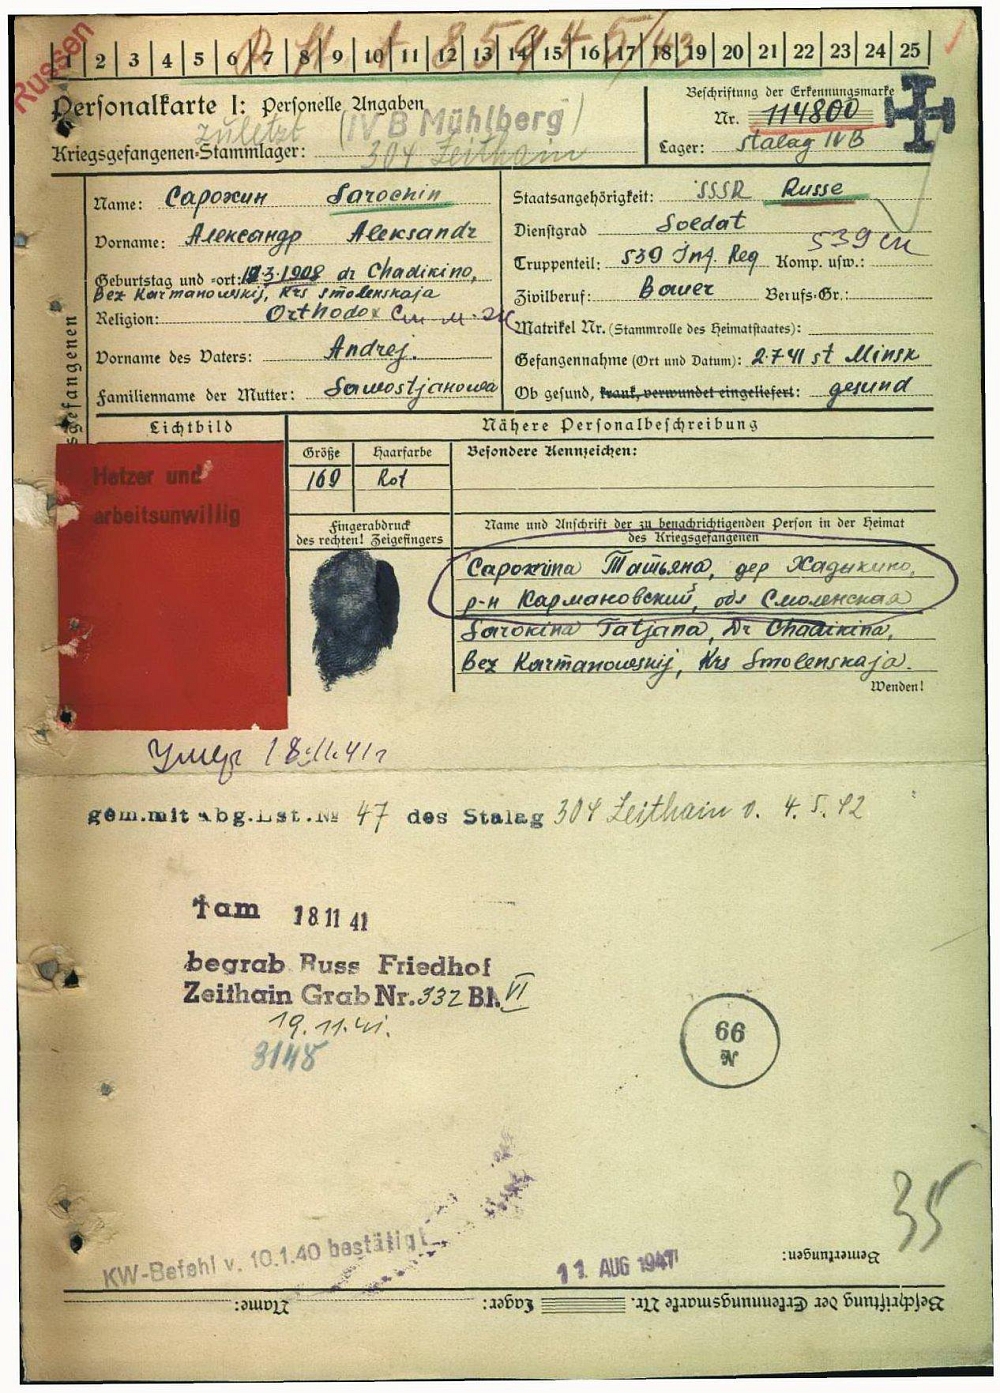 Russen
1 2 3 4 5 6 7 8 9 10 11 12 13 14 15 16 17 18 19 20 21 22 23 24 25
Personalkarte I: Personelle Angaben
Beschriftung der Erkennungsmarke
Nr. 114800
zuletzt (IV B Mühlberg)
Kriegsgefangenen-Stammlager: 304 Zeithain
Lager: Stalag IVB
Name: Сарожин Sarochin
Vorname: Александр Aleksandr
Geburtstag und -ort: 3.1908 dr Chadikino,
Bez Karmanowskij, Krs Smolenskaja
Religion: Orthodox
Vorname des Vaters: Andrej.
Familienname der Mutter: Sawostjanowa
Staatsangehörigkeit: SSSR Russe
Dienstgrad Soldat
539 сп
Truppenteil: 539 Inf. Reg Komp. usw.:
Zivilberuf: Bauer Berufs-Gr.:
Matrikel Nr. (Stammrolle des Heimatstaates):
Gefangennahme (Ort und Datum): 2.7.41 st Minsk
Ob gesund, krank, verwundet eingeliefert: gesund
sgefangenen
Lichtbild
Nähere Personalbeschreibung
Größe Haarfarbe Besondere Kennzeichen:
169 Rot
Hetzer und
arbeitsunwillig
Fingerabdruck
des rechten! Zeigefingers
Name und Anschrift der zu benachrichtigenden Person in der Heimat
des Kriegsgefangenen
Сарожина Татьяна, дер Хадыкино,
р-н Кармановский, обл Смоленская
Sarokina Tatjana, Dr Chadikina,
Bez Karmanowskij, Krs Smolenskaja.
Wenden!
Умер 18.11.41г
gem.mit Abg.Lst.№ 47 des Stalag 304 Zeithain v. 4.5.42
† am 18 11 41
begrab Russ Friedhof
Zeithain Grab Nr. 332 Bl. VI
19.11.41.
3148
66
N
35
KW-Befehl v. 10.1.40 bestätigt
11 AUG 1941
Bemerkungen:
Beschriftung der Erkennungsmarke Nr. Lager: Name: